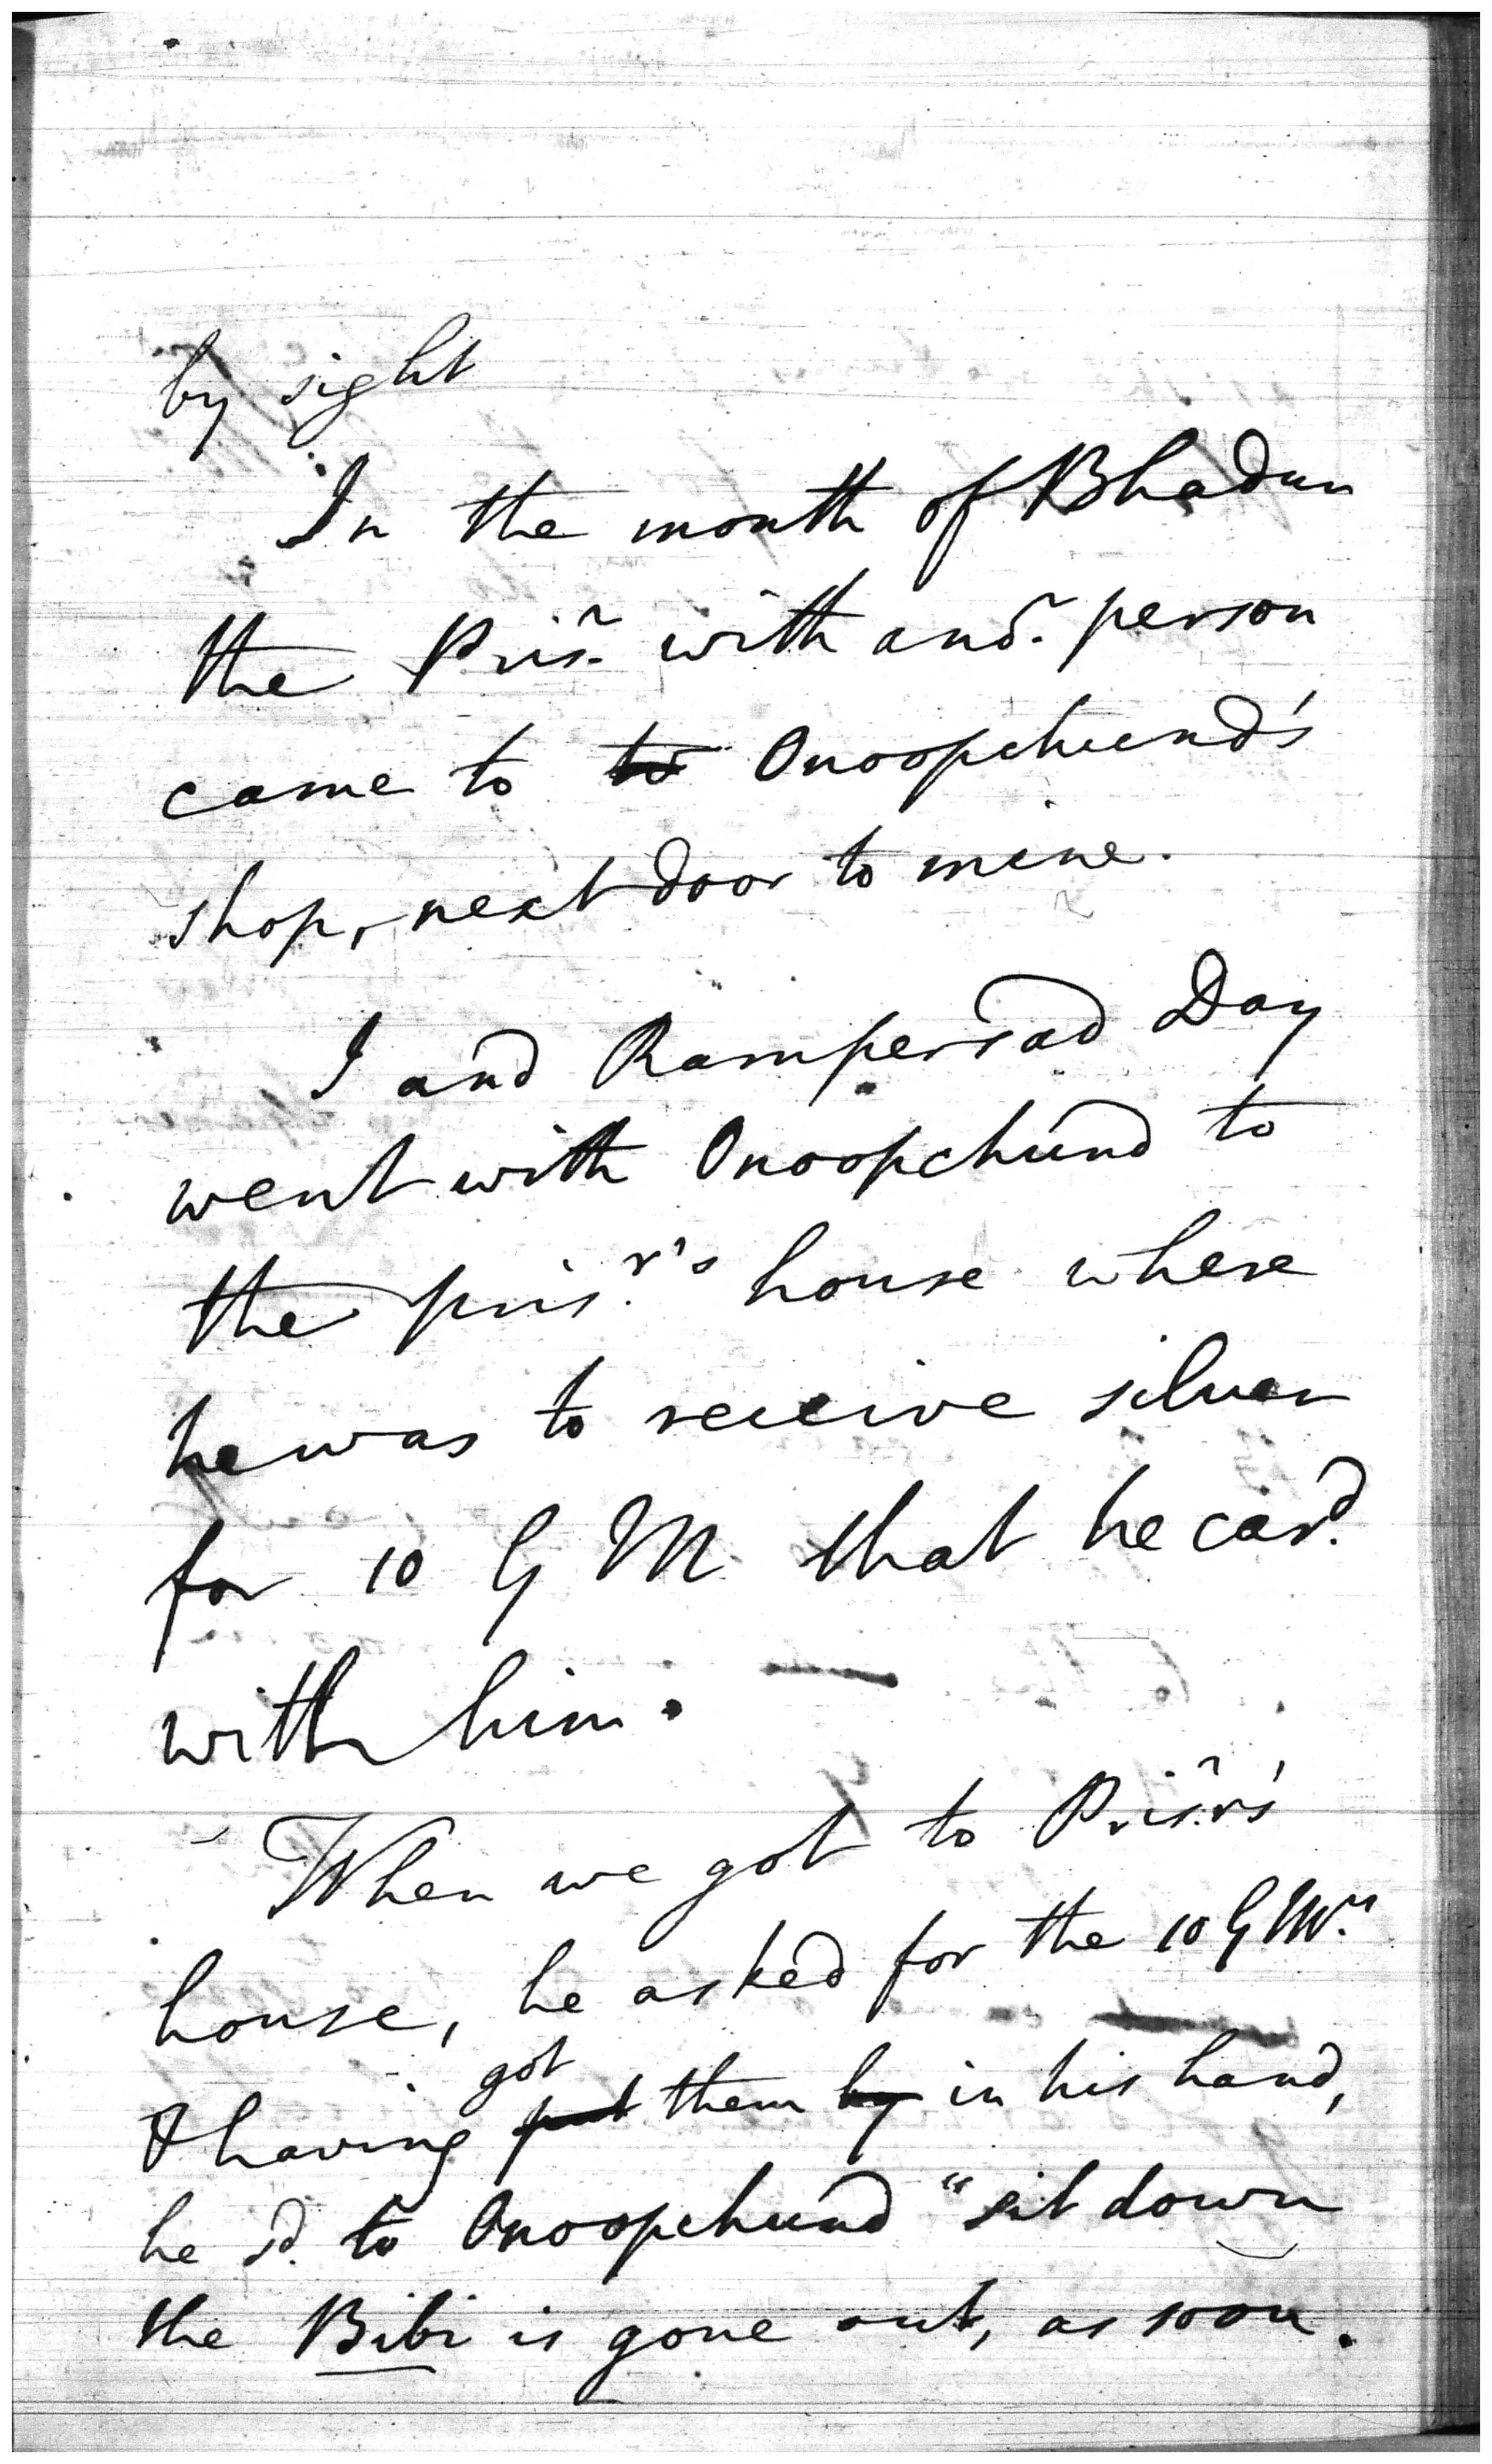 by sight
In the month of Bhadun
the Prisr. with anor. person
came to to Onoopchund's
shop, next door to mine.
I and Rampersad Day
went with Onoopchund to
the prisr's house where
he was to receive silver
for 10 G M that he card.
with him.
When we got to Prisr's
house, he asked for the 10 G Mrs.
got
& having put them by in his hand,
he sd. to Onoopchund "sit down
the Bibi is gone out, as soon.